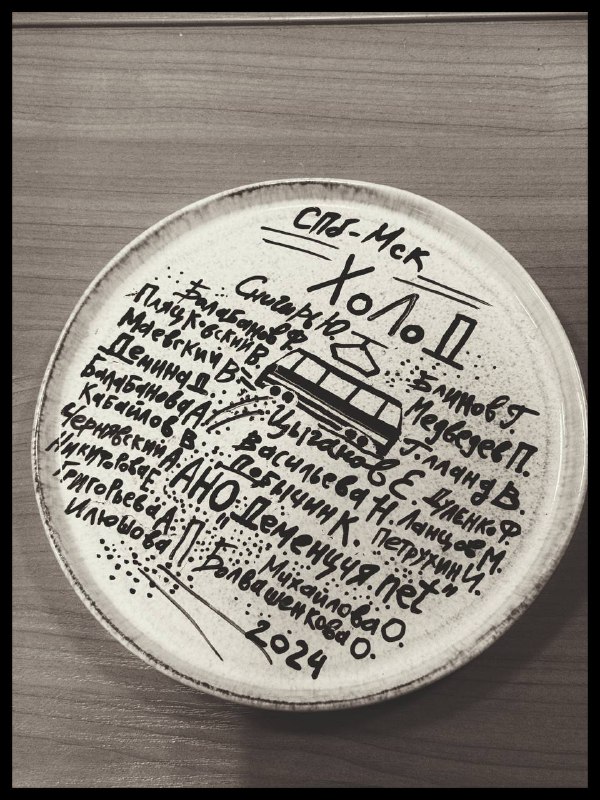 СПб-Мск
ХОЛОД
Снигирь Ю.
Балабанов Ф.
Пляцковский В.
Маевский В.
Демина Д.
Балабанова А.
Кабайлов В.
Чернявский А.
Никиторова Е.
Григорьева А.
Илюшова П
Блинов Г.
Медведев П.
Голланд В.
Цыганов Е. Дуленко Ф
Васильева Н. Ланцов М.
Побычин К. Петрухин И.
АНО "Деменция net"
Михайлова О.
Болвашенкова О.
2024